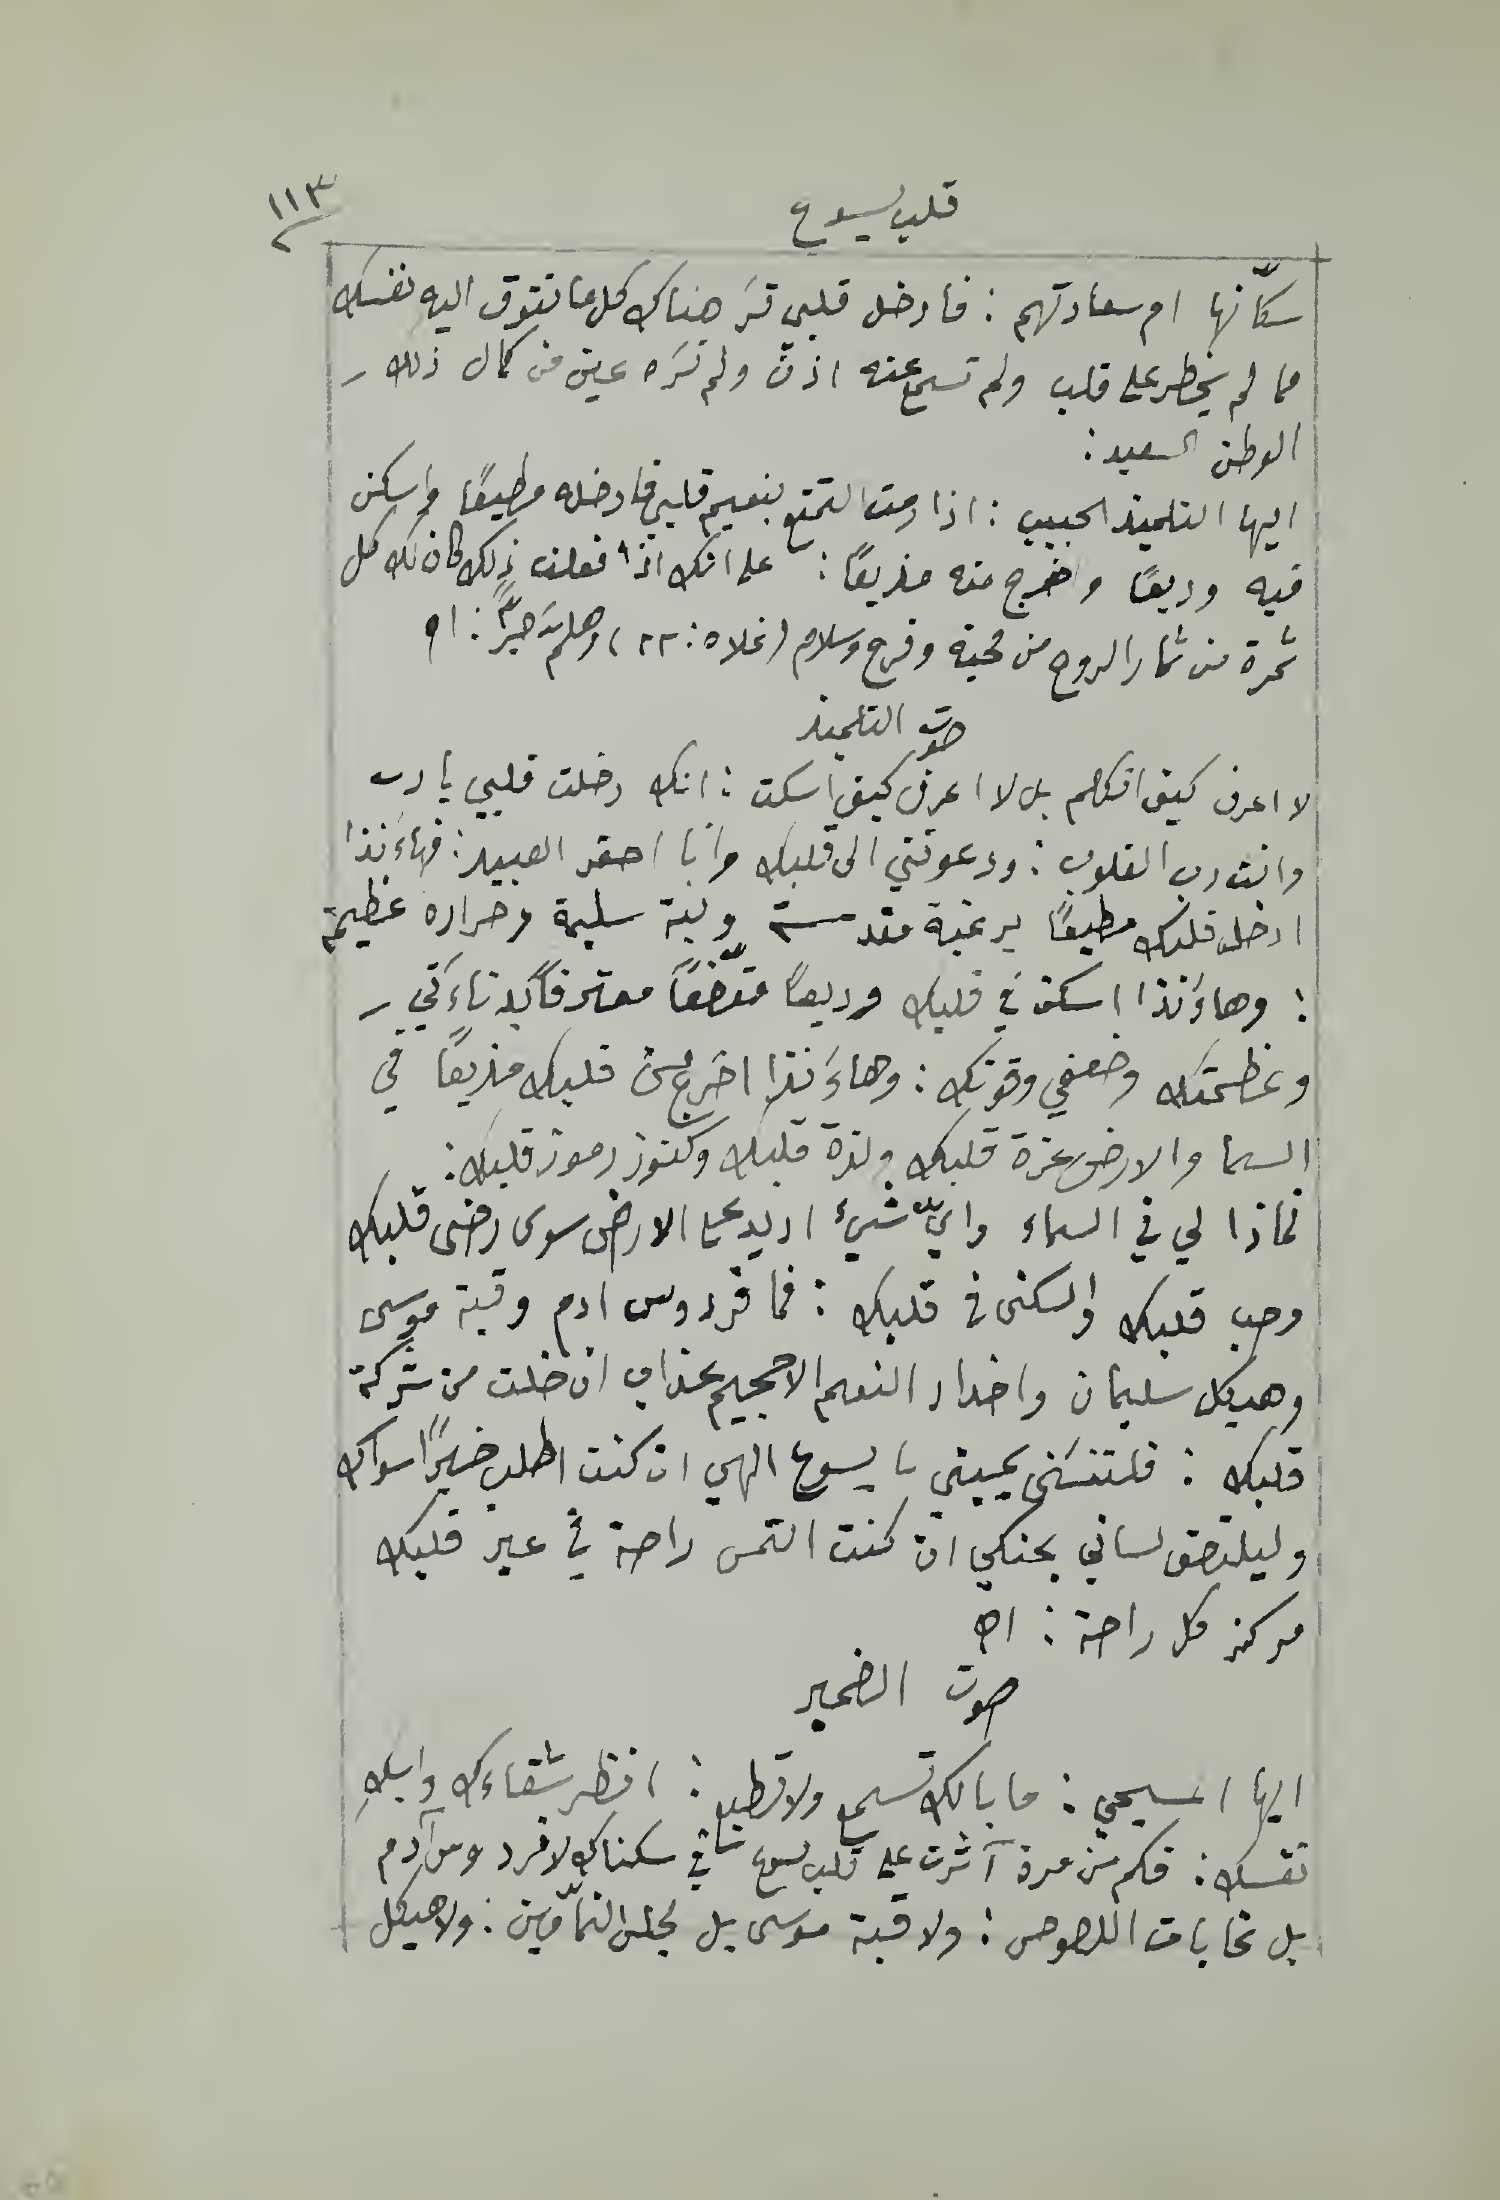 ١١٣
قلب يسوع
سكّانها ام سعادتهم : فادخل قلبي ترَ هناك كل ما تتوق اليه نفسك
مما لم يخطر على قلب ولم تسمع عنه اذنٌ ولم تَرَه عين من كمال ذلك
الوطن السعيد :
ايها التلميذ الحبيب : اذا رمت التمتع بنعيم قلبي فادخله مطيعًا واسكن
فيه وديعًا واخرج منه مذيعًا : على انك اذا فعلت ذلك كان لك كل
ثمرة من ثمار الروح من محبة وفرح وسلام (غلا ٥ : ٢٢) وهلم جرًّا : اه
صوت التلميذ
لا اعرف كيف اتكلم بل لا اعرف كيف اسكت : انك دخلت قلبي يا رب
وانت رب القلوب : ودعوتني الى قلبك وانا احقر العبيد : فهاءَنذا
ادخل قلبك مطيعًا برغبة مقدسة ونية سليمة وحرارة عظيمة
: وهاءَنذا اسكن في قلبك وديعًا متّضعًا معترفًا بدناءَتي
وعظمتك وضعفي وقوتك : وهاءَنذا اخرج من قلبك مذيعًا في
السما والارض عزة قلبك ولذة قلبك وكنوز رموز قلبك :
فماذا لي في السماء وايّ شيء اريد على الارض سوى رضى قلبك
وحب قلبك والسكنى في قلبك : فما فردوس ادم وقبة موسى
وهيكل سليمان واخدار النعيم الا جحيم عذاب ان خلت من شركة
قلبك : فلتنسَني يميني يا يسوع الهي ان كنت اطلب خيرًا سواك
وليلتصق لساني بحنكي ان كنت التمس راحة في غير قلبك
مركز كل راحة : اه
صوت الضمير
ايها المسيحي : ما بالك تسمع ولا تطيع : انظر شقاءَك وابكِ
نفسك : فكم من مرة آثرت على قلب يسوع في سكناك لا فردوس آدم
بل غابات اللصوص : ولا قبة موسى بل مجلس النمّامين : ولا هيكل